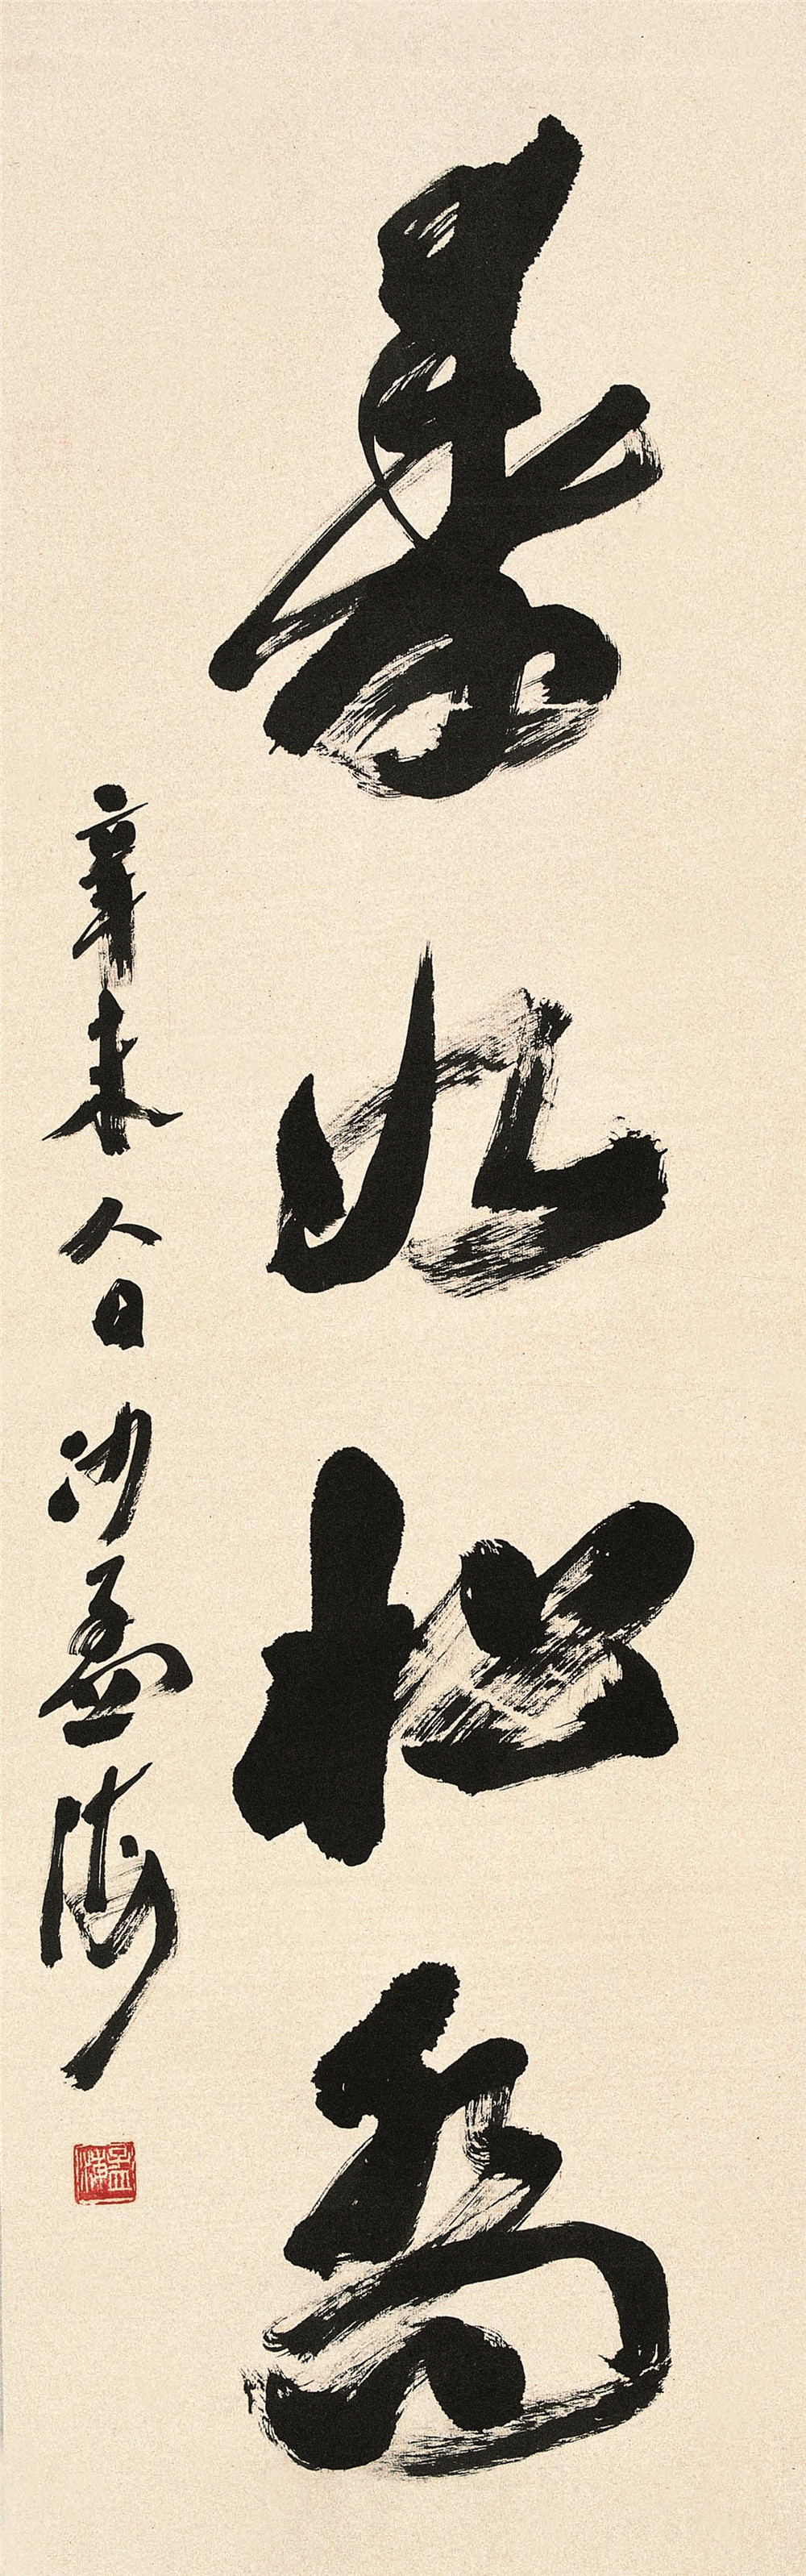 壽如松喬
辛未人日沙孟海
孟海